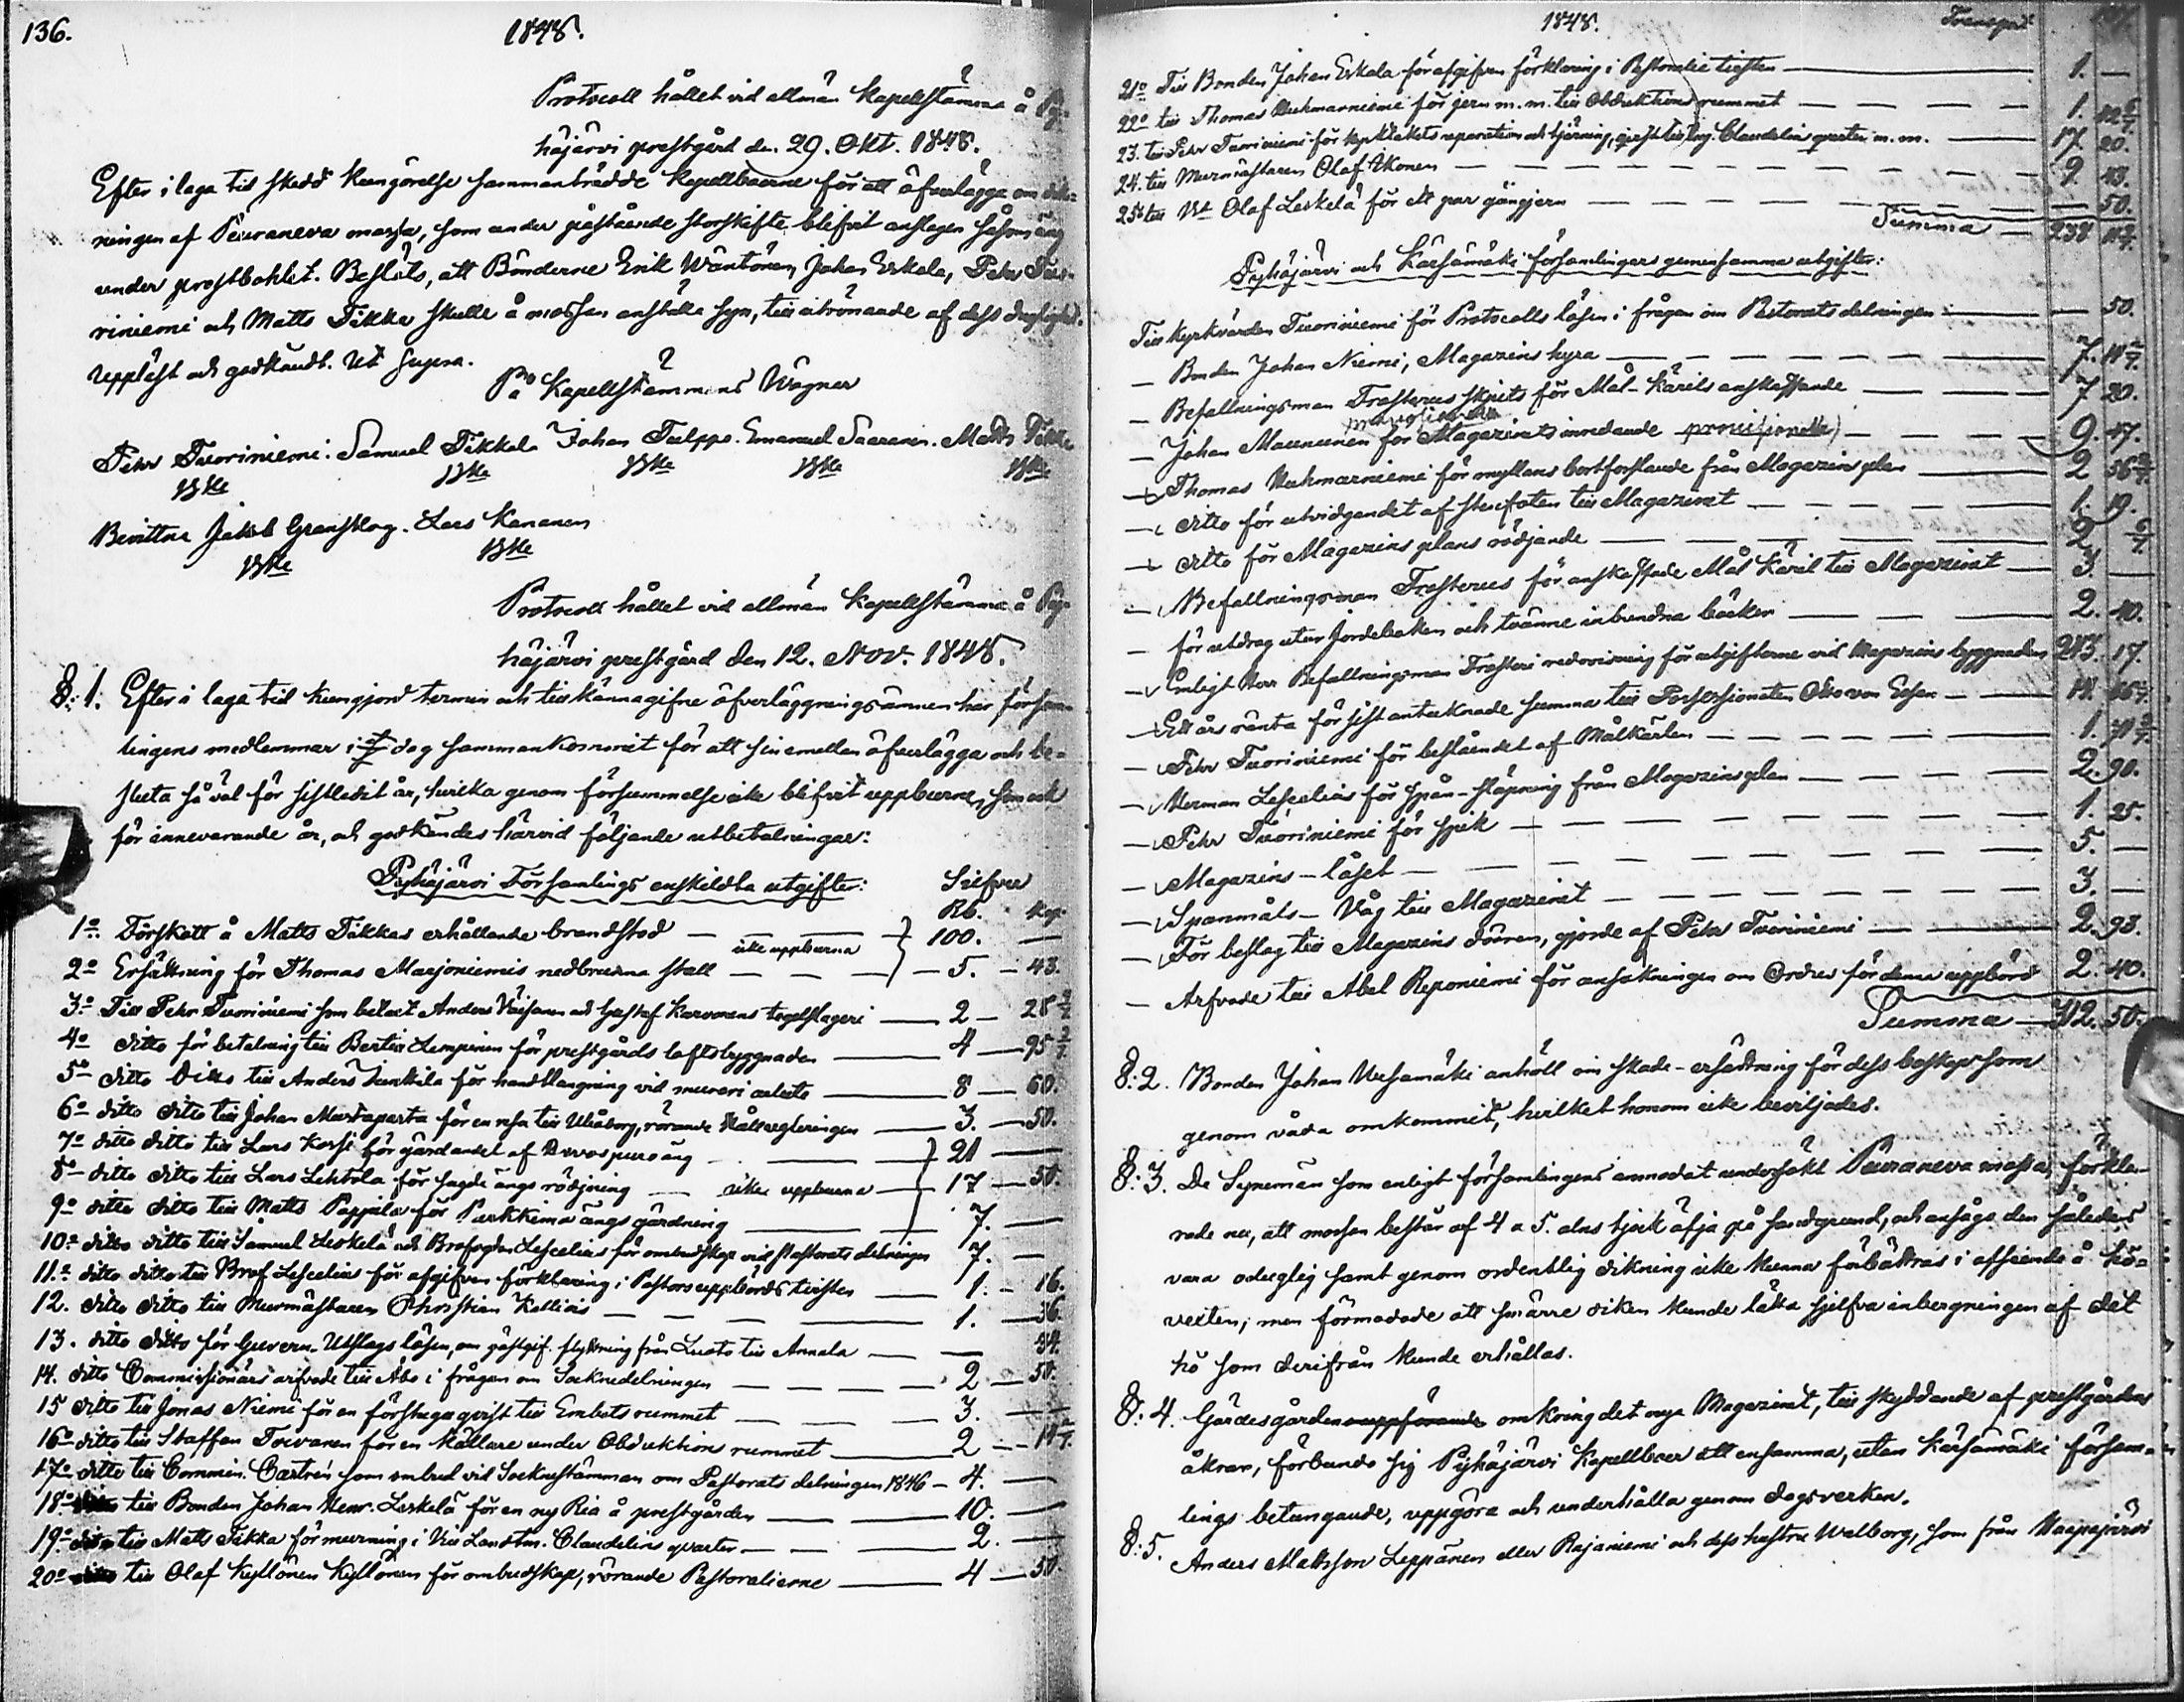 136.
1848.
Protocoll hållet vid allmän Kapellstämma å Py-
häjärvi prestgård den 29. Okt. 1848.
Efter i laga tid skedd kungörelse sammanträdde kapellboerne för att öfverlägga om
ningen af Peuraneva mossa, som under påstående storskifte blifvit anslagen såsom äng
under prestbohlet. Beslöts, att Bönderne Erik Wäntönen, Johan Eskola, Pehr Tuo-
riniemi och Matts Tikka skulle å mossan anställa syn, till utrönande af dess duglighet.
Uppläst och godkändt. Ut supra.
På Kapellstämmans Wägnar
Pehr Tuoriniemi. Samuel Tikkala Johan Tulppo. Emanuel Saaranen. Matts Tikka
Bevittna Jakob Granskog. Lars Kananen
Protocoll hållet vid allmän Kapellstämma å Py-
häjärvi prestgård den 12. Nov. 1848.
§: 1. Efter i laga tid kungjord termin och tillkännagifne öfverläggningsämnen har försam-
lingens medlemmar i dag sammankommit för att sinemellan öfverlägga och be-
sluta så väl för sistledit år, hvilka genom försummelse icke blifvit uppburne, som ock
för innevarande år, och godkändes härvid följande utbetalningar:
Pyhäjärvi Församlings enskildta utgifter: Silfver
Rb. Kop.
1o. Förskott å Matts Tikkas erhållande brandstod — 100. —
icke uppburna
2o Ersättning för Thomas Marjoniemis nedbrunna stall — 5. — 43.
3o Till Pehr Tuoriniemi som betalt Anders Väisänen och Gustaf Karvonens tegelslageri — 2 — 28 4/7
4o ditto för betalning till Bertil Lempinen för prestgårds loftsbyggnaden — 4 — 95 3/7
5o ditto ditto till Anders Junttila för handtlangning vid mureri arbete — 8 — 60.
6o ditto ditto till Johan Mustaparta för en resa till Uleåborg, rörande — 3. — 50.
7o ditto ditto till Lars Korsi för gärdandet af äng — 21 —
8o ditto ditto till Lars Lehtola för sagde ängs rödjning — icke uppburna — 17 — 50.
9o ditto ditto till Matts Pappila för Purkkima ängs gärdning — 7. —
10o ditto ditto till Samuel Leskelä och Brofogden Lescelius för ombudskap vid Pastorats delningen 7. —
11.o ditto ditto till Brof Lescelius för afgifven förklaring i Pastors uppbörds tvisten — 1. — 16.
12. ditto ditto till Murmästaren Christian Kallio — 1. — 36
13. ditto ditto för Guvern. Utslags lösen, om gästgif. flyttning från Luoto till Annala — 94.
14. ditto Commissionärs arfvode till Åbo i frågan om Socknedelningen — 2 — 50.
15 ditto till Jonas Niemi för en förstuguqvist till Embetsrummet — 3. —
16o ditto till Staffan Toivanen för en källare under Obduktions rummet — 2 — 14 2/7.
17o ditto till Commin. Castrén som ombud vid Socknestämman om Pastorats delningen 1846 — 4. —
18o till Bonden Johan Henr. Leskelä för en ny Ria å prestgården — 10. —
19o till Matts Tikka för murning i Vice Landtm. Claudelins qvarter — 2. —
20o till Olaf Kyllönen Kyllönen för ombudskap, rörande Pastoralierne — 4 — 50.
1848. Transport
21o Till Bonden Johan Eskola för afgifven förklaring i Pastoralie tvisten — 1. —
22o till Thomas Ruhmarniemi för jern m. m. till Obduktions rummet — 1. 42 6/7.
23. till Pehr Tuoriniemi för kyrktakets reparation och tjärning, Claudelins qvarter m. m. — 17. 20.
24. till Murmästaren Olaf Ikonen — 9. 43.
25o till Olaf Leskelä för ett par gångjern — 50.
Summa — 238
Pyhäjärvi och Kärsämäki församlingars gemensamma utgifter:
Till Kyrkvärden Tuoriniemi för Protocolls lösen i frågan om Pastorats delningen — 50.
— Bonden Johan Niemi, Magazins hyra — 7. 14 2/7.
— Befallningsman Frosterus skjuts för Mål-Kärils anskaffande — 7 20.
provisionella
— Johan Maununen för Magazinets inredande provisionella — 9. 47.
— Thomas Ruhmarniemi för myllans bortforslande från Magazins plan — 2 56
— ditto för utvidgandet af stenfoten till Magazinet — 1. 19.
— ditto för Magazins plans rödjande — 2. 6/7
— Befallningsman Frosterus för anskaffade Mål Käril till Magazinet — 3. —
— för utdrag utur Jordeboken och tvänne inbundna böcker — 2. 40.
— Enligt Herr Befallningsman Frosteri redovisning för utgifterne vid Magazins byggnaden 243. 17.
— Ett års ränta för sist antecknade summa till Possessionaten Otto von Essen — 14.
— Pehr Tuoriniemi för beslåendet af Målkärlen — 1.
— Herman Lescelius för spån-släpning från Magazinsplan — 2. 90.
— Pehr Tuoriniemi för spik — 1. 25.
— Magazins-låset — 5. —
— Spanmåls-Våg till Magazinet — 3. —
— För beslag till Magazins dörren, gjorde af Pehr Tuoriniemi — 2. 93.
— Arfvode till Abel Reponiemi för ansökningen om Ordres för denna uppbörd 2. 40.
Summa — 312. 50.
§: 2. Bonden Johan Vesamäki anhöll om skade-ersättning för dess boskap som
genom våda omkommit, hvilket honom icke beviljades.
§: 3. De Synemän som enligt församlingens anmodat undersökt Peuraneva mossa, förkla-
rade nu, att mossan består af 4 a 5. alns tjock äfja på sandgrund, och ansågo den således
vara oduglig samt genom ordentlig dikning icke kunna förbättras i afseende å hö-
vexten; men förmodade att smärre diken kunde lätta sjelfva inbergningen af det
hö som derifrån kunde erhållas.
§: 4. Gärdesgården uppförande omkring det nya Magazinet, till skyddande af prestgårdens
åkrar, förbundo sig Pyhäjärvi Kapellboer att ensamma, utan Kärsämäki försam-
lings betungande, uppgöra och underhålla genom dagsverken.
§: 5. Anders Mattsson Leppänen eller Rajaniemi och dess hustru Walborg, som från Haapajärvi